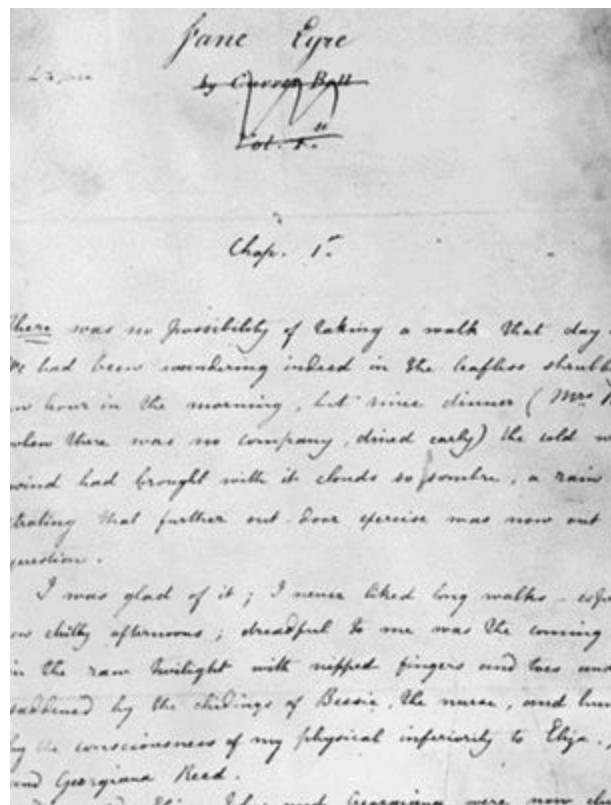 Jane Eyre
by Currer Bell
Vol. 1.st
Chap. 1.st
There was no possibility of taking a walk that day.
We had been wandering indeed in the leafless shrubb
an hour in the morning, but since dinner (Mrs R
when there was no company, dined early) the cold w
wind had brought with it clouds so sombre, a rain
trating that further out-door exercise was now out
question.
I was glad of it; I never liked long walks - espe
on chilly afternoons; dreadful to me was the coming
in the raw twilight with nipped fingers and toes and
saddened by the chidings of Bessie, the nurse, and hum
by the consciousness of my physical inferiority to Eliza,
and Georgiana Reed.
Georgiana were now